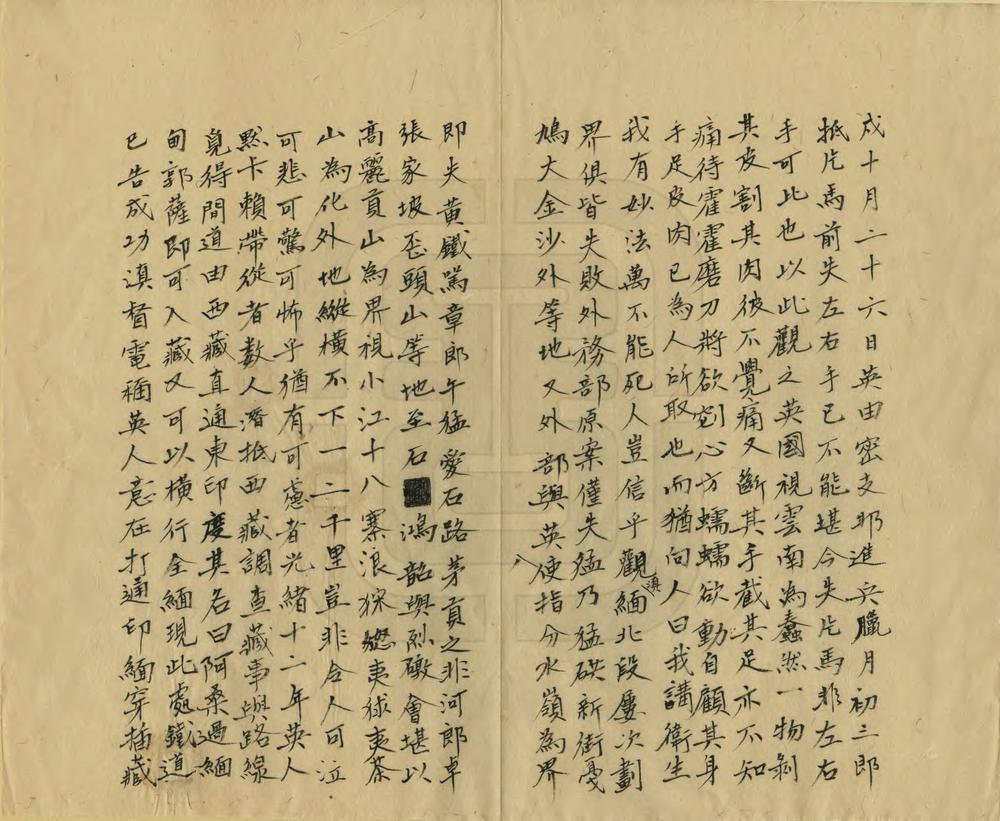 戍十月二十六日英由密支那進兵臘月初三郎
抵片馬前失左右手已不能堪今失片馬非左右
手可比也以此觀之英國視雲南為蠢然一物剝
其皮割其肉彼不覺痛又斷其手截其足亦不知
痛待霍霍磨刀將欲剜心方蠕蠕欲動自顧其身
手足皮肉已為人所取也而猶向人曰我講衛生
我有妙法萬不能死人豈信乎觀滇緬北段屢次劃
界俱皆失敗外務部原案僅失猛乃猛硔新街戞
鳩大金沙外等地又外部與英使指分水嶺為界
即失黃鐵罵章郎午猛愛石路茅貢之非河郎卓
張家坡歪頭山等地至石鴻韶與烈礅會堪以
高麗貢山為界視小江十八寨浪猓憖夷狳夷茶
山為化外地縱橫不下一二千里豈非令人可泣
可悲可驚可怖乎猶有可慮者光緒十二年英人
黙卡賴帶從者數人潛抵西藏調查藏事與路線
覓得間道由西藏直通東印度其名曰阿桑過緬
甸郭薩即可入藏又可以橫行全緬現此處鐵道
已告成功滇督電稱英人意在打通印緬穿插藏